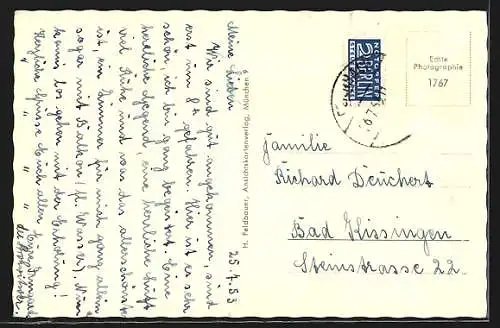 25.7.53
Meine Lieben
Wir sind gut angekommen, sind
erst um 8h gefahren. Hier ist es sehr
schön, ich bin ganz begeistert. Eine
herrliche Gegend, eine herrliche Luft
viel Ruhe und was das allerschönste
ist, ein Zimmer für mich ganz allein
sogar mit Balkon (fl. Wasser). Nun
kann's los gehen mit der Erholung!
Herzliche Grüsse Euch allen
H. Feldbauer, Ansichtskartenverlag, München 9
NOTOPFER
2 BERLIN
STEUERMARKE
Echte
Photographie
1767
Familie
Richard Deuchert
Bad Kissingen
Steinstrasse 22.